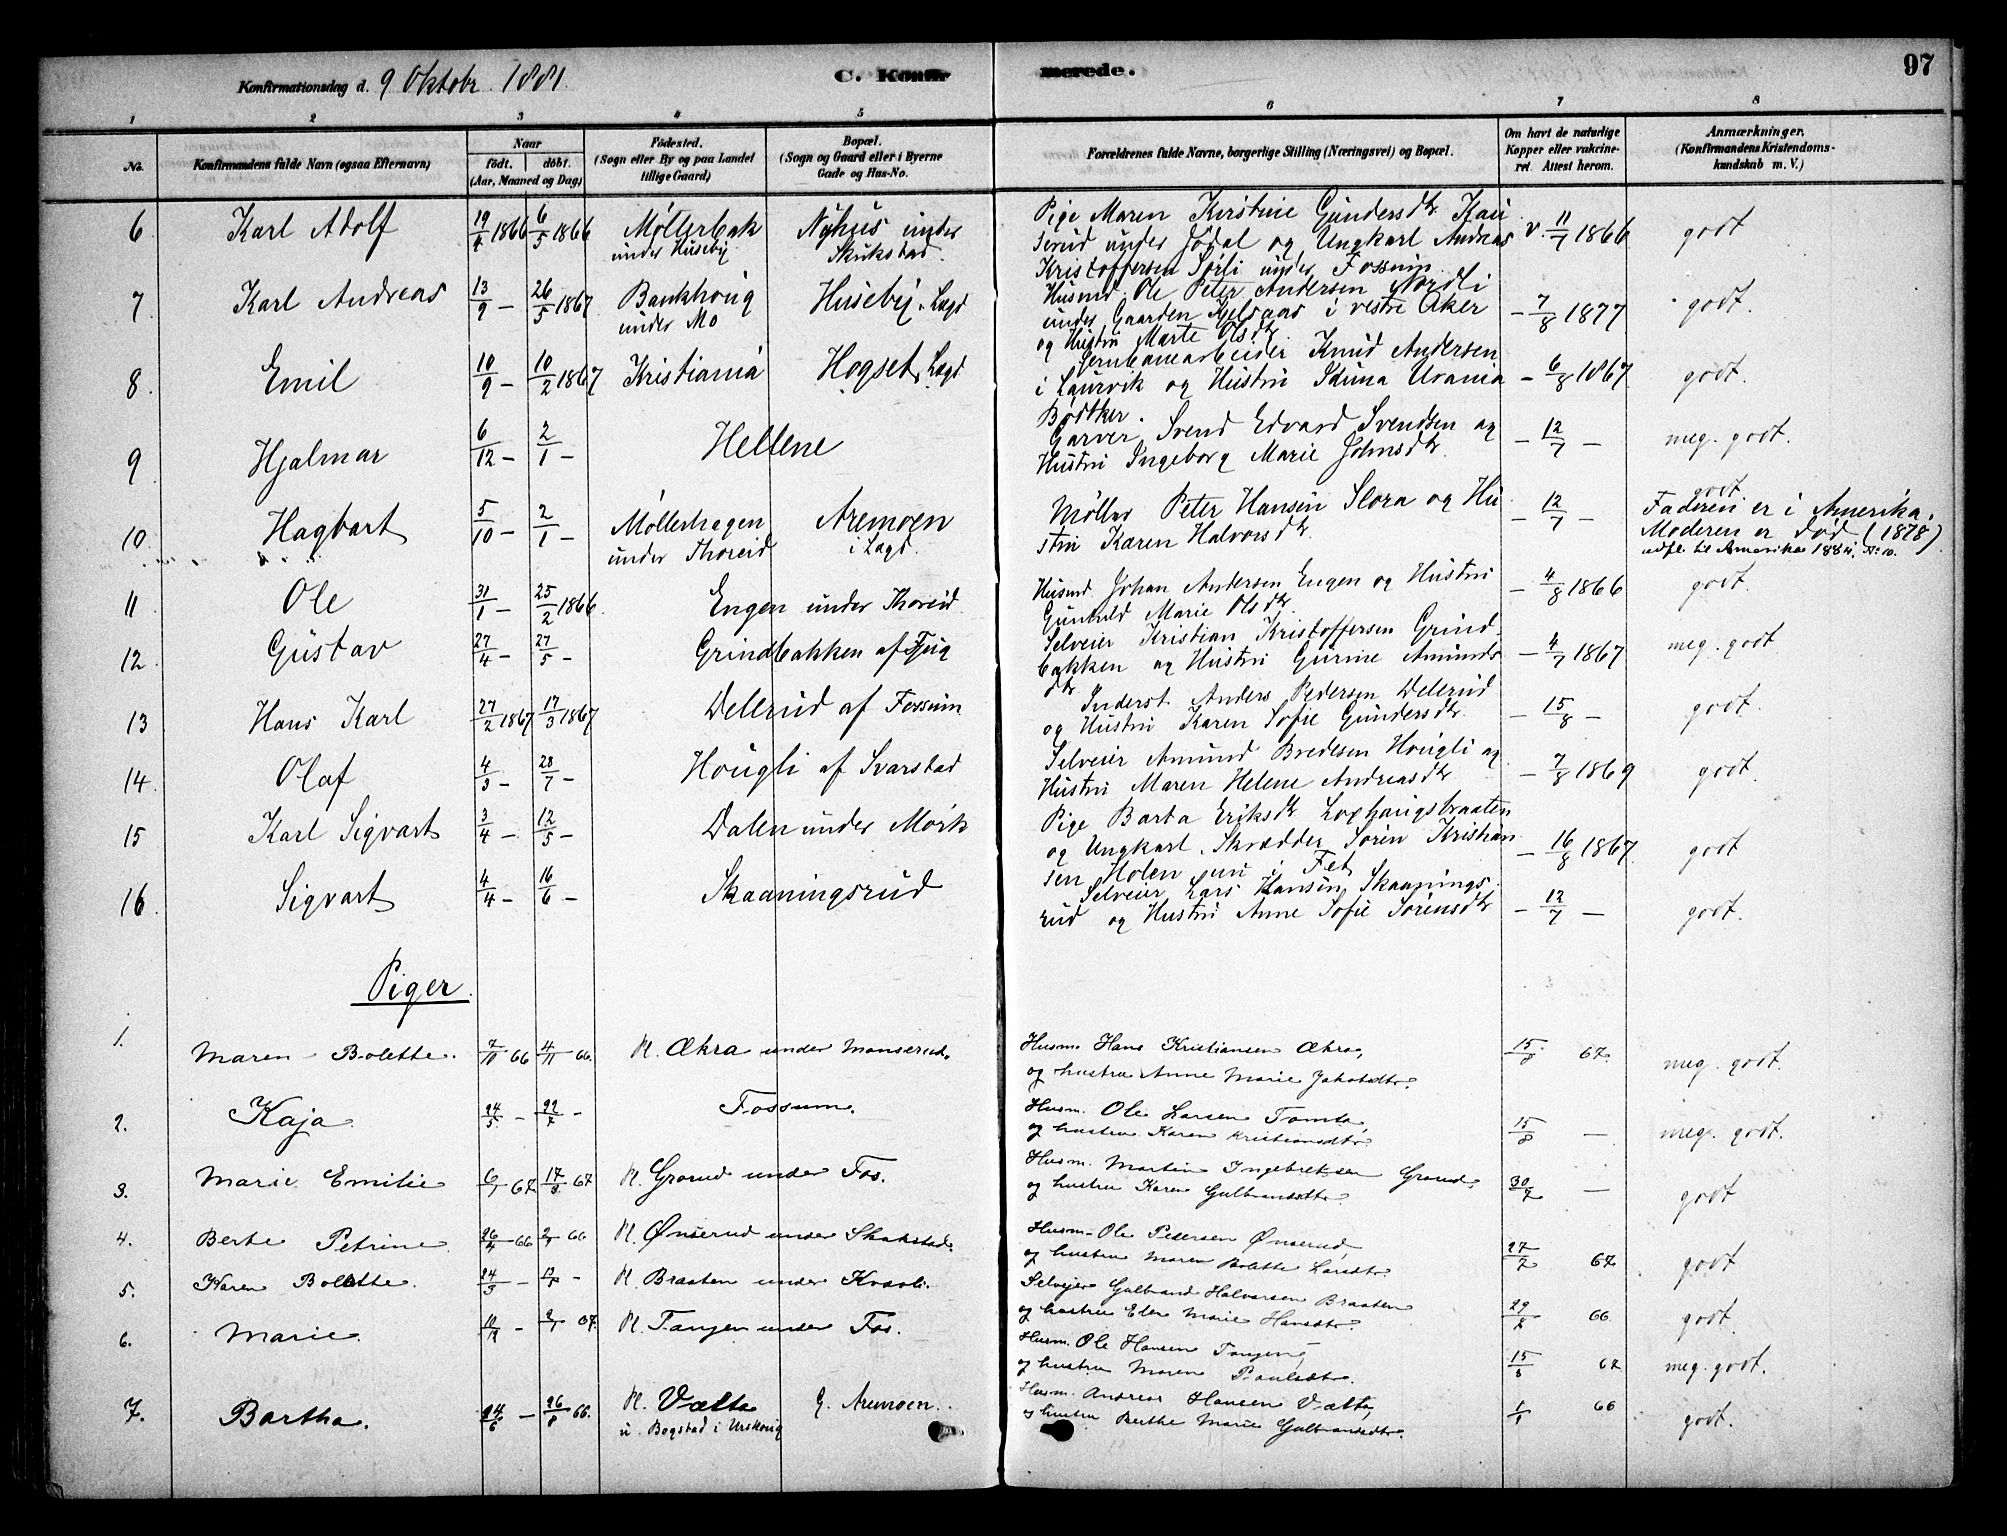 Konfirmationsdag d. 9 Oktobr. 1881.
C. Konfirmerede.
97
1 2 3 4 5 6 7 8
No.
Konfirmandens fulde Navn (ogsaa Efternavn)
Naar
født. døbt.
(Aar, Maaned og Dag)
Fødested.
(Sogn eller By og paa Landet
tillige Gaard)
Bopæl.
(Sogn og Gaard eller i Byerne
Gade og Hus-No.
Forældrenes fulde Navne, borgerlige Stilling (Næringsvei) og Bopæl.
Om havt de naturlige
Kopper eller vakcine-
ret Attest herom.
Anmærkninger.
(Konfirmandens Kristendoms-
kundskab m. V.)
6 Karl Adolf 19/4 1866 6/5 1866 Møllerbak Nyhus under
under Huseby Skukstad.
Pige Maren Kirstine Gundersdtr Kau
serud under Jødal og Ungkarl Andreas
Kristoffersen Sørli under Fossum
v. 11/7 1866 godt
7 Karl Andreas 13/9 – 26/5 1867 Bankhoug Huseby. Lægd
under Mo
Husmd. Ole Peter Andersen Nordli
under Gaarden Kjelsaas i vestre Aker
og Hustru Marte Olsdtr
– 7/8 1877 godt.
8. Emil 10/9 – 10/2 1867 Kristiania Hogset, Lægd
Jernbanearbeider Knud Andersen
i Laurvik og Hustru Urania
Bødtker.
– 6/8 1867 godt.
9 Hjalmar 6/12 – 2/1 – Hellene
Garver Svend Edvard Svendsen og
Hustru Ingeborg Marie Johnsdtr.
– 12/7 – meg. godt.
10. Hagbart 5/10 – 2/1 – Møllerhagen Aremoen
under Thoreid i Lægd.
Møller Peter Hansen Slora og Hu
stru Karen Halvorsdtr.
– 12/7 – godt
Faderen er i Amerika.
Moderen er død (1878)
udfl. til Amerika 1884. No 10.
11 Ole 31/1 – 25/2 1866 Engen under Thoreid.
Husmd. Johan Andersen Engen og Hustru
Gunhild Marie Olsdtr.
– 4/8 1866 godt.
12. Gustav 27/4 – 27/5 – Grindbakken af Tjug
Selveier Kristian Kristoffersen Grind
bakken og Hustru Gurine Amunds
dtr
– 4/7 1867 meg. godt
13 Hans Karl 27/2 1867 17/3 1867 Delerud af Fossum
Inderst. Anders Pedersen Delerud
og Hustru Karen Sofie Gundersdtr.
– 15/8 – godt.
14 Olaf 4/3 – 28/7 – Hougli af Svarstad
Selveier Amund Bredesen Hougli og
Hustru Maren Helene Andreasdtr
– 7/8 1869 godt.
15 Karl Sigvart 3/4 – 12/5 – Dalen under Mørk
Pige Barta Eriksdtr Loxhaugsbraaten
og Ungkarl. Skrædder Søren Kristian
sen Holen i Fet
– 16/8 1867. godt
16 Sigvart 4/4 – 16/6 – Skaaningsrud
Selveier Lars Hansen Skaanings
rud og Hustru Anne Sofie Sørensdtr
– 12/7 – godt.
Piger.
1. Maren Bolette. 7/10 66 4/11 66. Pl. Økra under Monserud.
Husm. Hans Kristiansen Økra,
og hustru Anne Marie Jakobsdtr.
15/8 67. meg. godt.
2. Kaja 24/5 – 22/7 – Fossum.
Husm. Ole Larsen Tomta,
og hustru Karen Kristiansdtr.
15/8 – meg. godt.
3. Marie Emilie 6/1 67 17/3 67 Pl. Grorud under Fos.
Husm. Martin Ingebretsen Grorud,
og hustru Karen Gulbransdtr.
30/7 – godt
4. Berte Petrine 26/4 66 66 Pl. Ønserud under Skukstad.
Husm. Ole Pedersen Ønserud,
og hustru Maren Bolette Larsdtr.
27/7 67 godt
5. Karen Bolette. 24/5 – – Pl. Braaten under Kvævli.
Selvejer Gulbrand Halvorsen Braaten
og hustru Elen Marie Hansdtr.
29/8 66 godt.
6. Marie 10/12 – 67. Pl. Tangen under Fos.
Husm. Ole Hansen Tangen,
og hustru Maren Paulsdtr.
15/8 67 meg. godt.
7. Bartha. 24/6 – 26/8 66. Pl. Vælta G. Aremoen.
u. Bogstad i Urskoug
Husm. Andreas Hansen Vælta,
og hustru Berthe Marie Gulbrandsdtr.
66 godt.